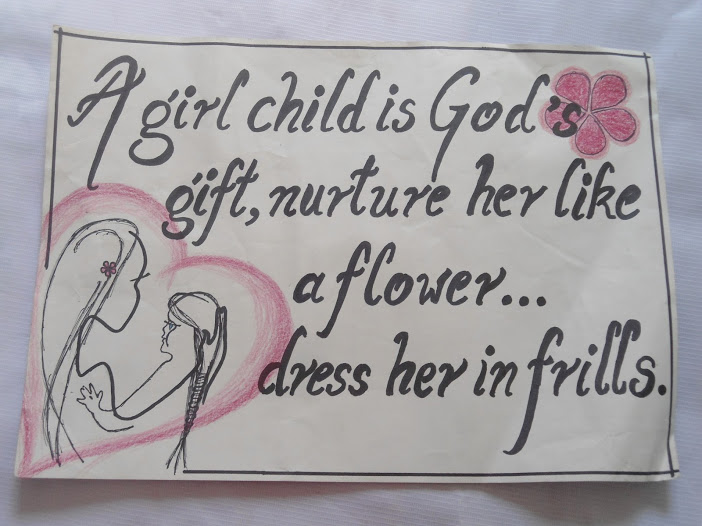 A girl child is God's
gift, nurture her like
a flower...
dress her in frills.